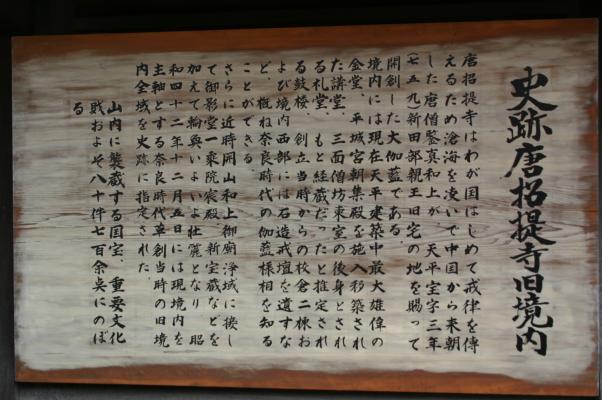 史跡唐招提寺旧境内
唐招提寺はわが国はじめて戒律を傳
えるため滄海を凌いで中国から来朝
した唐僧鑒真和上が、天平宝字三年
(七五九)新田部親王旧宅の地を賜って
開創した大伽藍である。
境内には現在天平建築中最大雄偉の
金堂、平城宮朝集殿を施入移築され
た講堂、三面僧坊東室の後身とされ
る礼堂、もと経蔵だったと推定され
る鼓楼、創立当時からの校倉二棟お
よび境内西部には石造戒壇を遺すな
ど、概ね奈良時代の伽藍様相を知る
ことができる。
さらに近時開山和上御廟浄域に接し
て御影堂一乗院宸殿、新宝蔵などを
加えて輪奐いよいよ壮麗となり 昭
和四十二年十二月五日には現境内を
主軸とする奈良時代草創当時の旧境
内全域を史跡に指定された。
山内に襲蔵する国宝、重要文化
財およそ八十件七百余点にのぼ
る